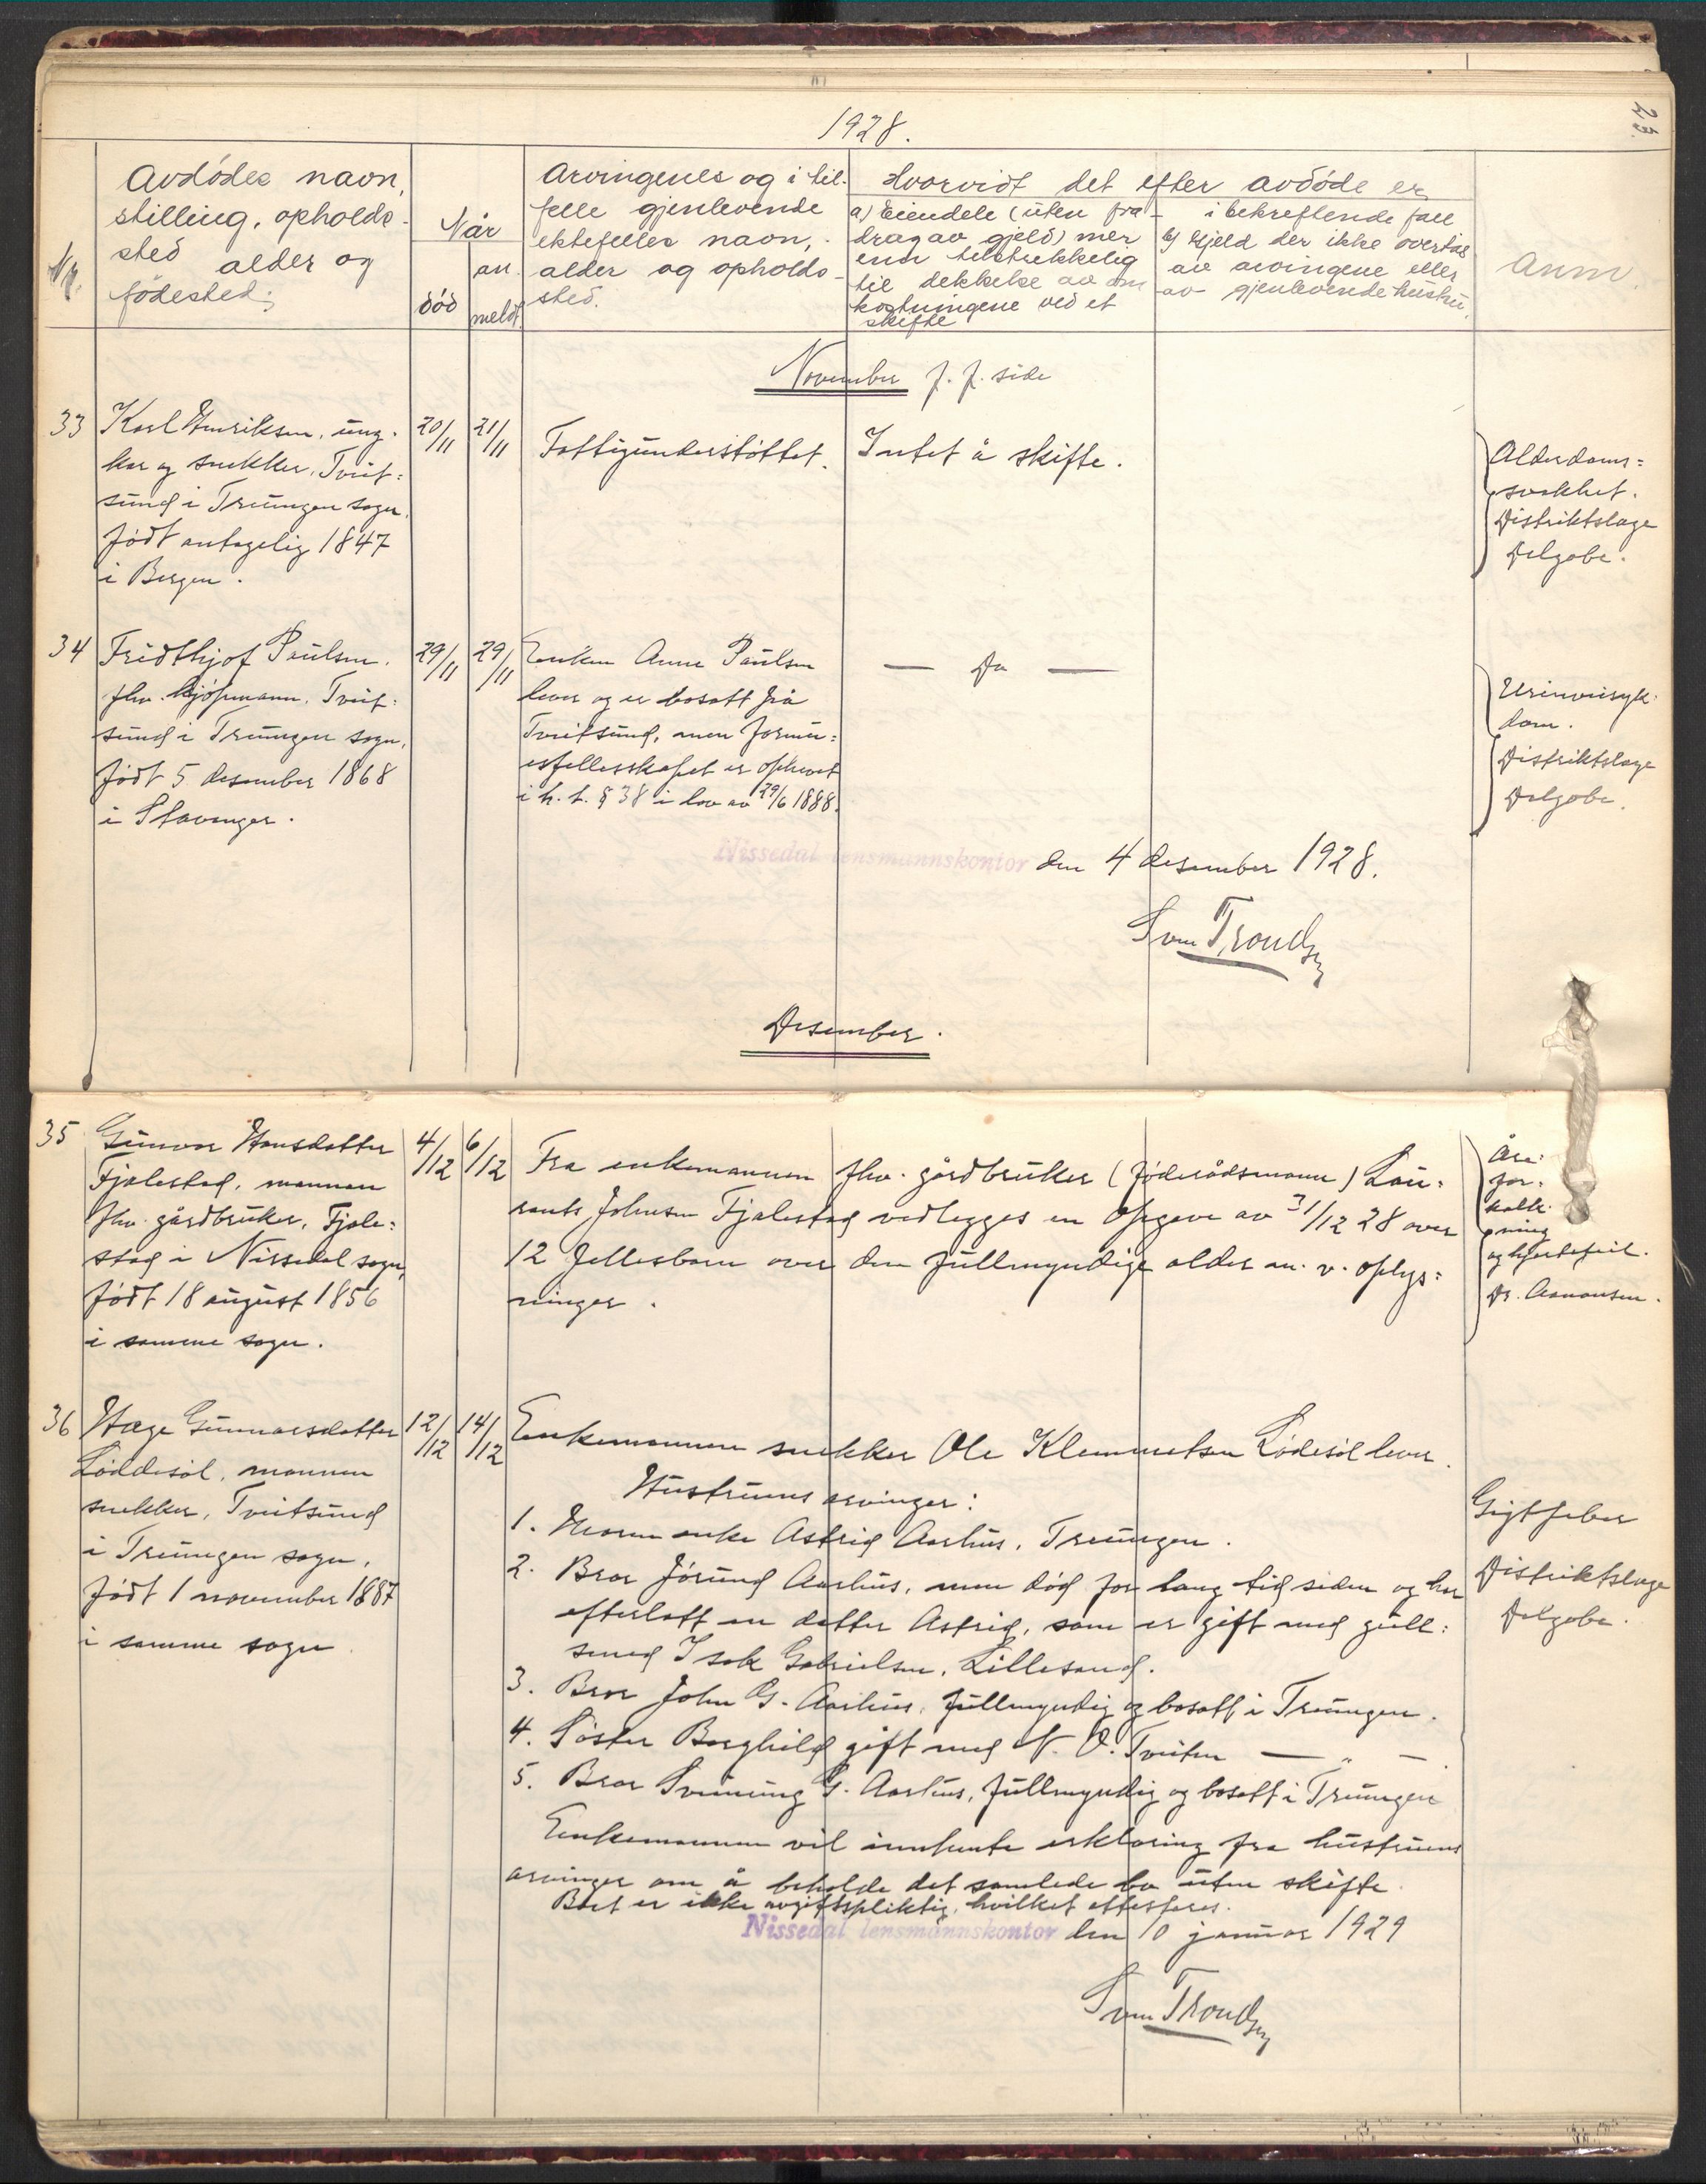 1928.
23.
Nr.
Avdødes navn,
stilling, opholds-
sted alder og
fødested;
Når
død
an
meldt.
Arvingenes og i til-
felle gjenlevende
ektefelles navn,
alder og opholds-
sted.
Hvorvidt det efter avdøde er
a) Eiendele (uten fra-
drag av gjeld) mer
enn tilstrekkelig
til dekkelse av om
kostningene ved et
skifte
i bekreftende fall
b) Gjeld der ikke overtas
av arvingene eller
av gjenlevende hustru.
Anm.
November f. f. side
33
Karl Henriksen, ung-
kar og snekker, Tveit=
sund i Treungen sogn.
Født antagelig 1847
i Bergen.
20/11
21/11
Fattigunderstøttet.
Intet å skifte.
Alderdoms=
svakhet.
Distriktslæge
Delgobe.
34
Fridthjof Paulsen.
fhv. kjøpmann, Tveit=
sund i Treungen sogn.
Født 5 desember 1868
i Stavanger.
29/11
29/11
Enken Anne Paulsen
lever og er bosatt på
Tveitsund, men formu=
esfellesskapet er ophevet
i h. t. § 38 i lov av 29/6 1888.
— Do —
Urinveisyk-
dom.
Distriktslæge
Delgobe.
Nissedal lensmannskontor den 4 desember 1928.
Sven Trondsen
Desember.
35
Gunvor Hansdatter
Fjalestad, mannen
fhv. gårdbruker, Fjale=
stad i Nissedal sogn,
født 18 august 1856
i samme sogn.
4/12
6/12
Fra enkemannen fhv. gårdbruker (føderådsmann) Lau=
rants Johnsen Fjalestad vedlegges en Opgave av 31/12 28 over
12 fellesbarn over den fullmyndige alder m. v. oplys=
ninger.
Åre-
for-
kalk-
ning
og hjertefeil.
Dr. Aamonsen.
36
Hæge Gunnarsdatter
Løddesøl, mannen
snekker, Tveitsund
i Treungen sogn.
født 1 november 1887
i samme sogn
12/12
14/12
Enkemannen snekker Ole Klemmetsen Lødesøl lever.
Hustruens arvinger:
1. Moren enke Astrid Aarhus, Treungen.
2. Bror Jørund Aarhus, men død for lang tid siden og har
efterlatt en datter Astrid, som er gift med gull=
smed Isak Gabrielsen, Lillesand.
3. Bror John G. Aarhus, fullmyndig og bosatt i Treungen.
4. Søster Borghild gift med N. O. Tveiten — " —
5. Bror Sveinung G. Aarhus, fullmyndig og bosatt i Treungen
Enkemannen vil innhente erklæring fra hustruens
arvinger om å beholde det samlede bo uten skifte.
Boet er ikke avgiftspliktig, hvilket attesteres.
Gigtfeber
Distriktslæge
Delgobe.
Nissedal lensmannskontor den 10 januar 1929
Sven Trondsen